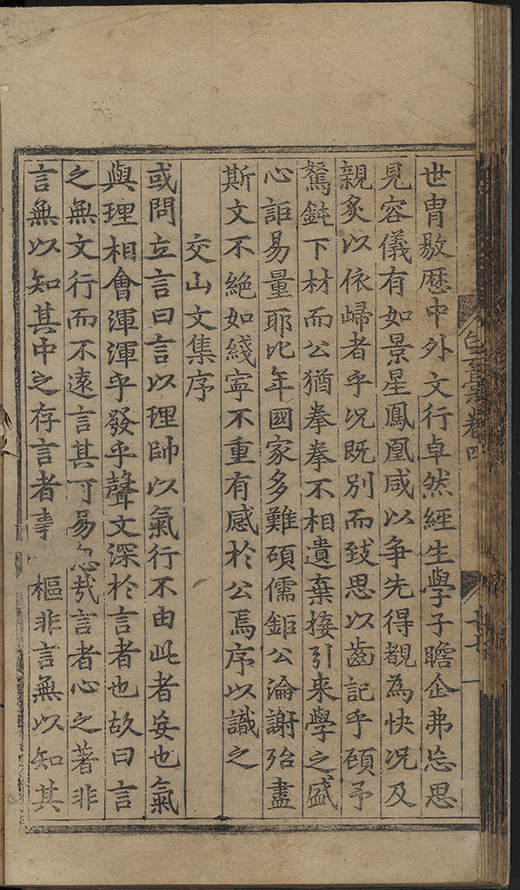 世冑敭歷中外文行卓然經生學子瞻企弗忘思
見容儀有如景星鳳凰咸以爭先得覩為快況及
親炙以依歸者乎況既別而致思以齒記乎顧予
駑鈍下材而公猶拳拳不相遺棄接引來學之盛
心詎易量耶比年國家多難碩儒鉅公淪謝殆盡
斯文不絕如綫寧不重有感於公焉序以識之
交山文集序
或問立言曰言以理帥以氣行不由此者妄也氣
與理相會渾渾乎發乎聲文深於言者也故曰言
之無文行而不遠言其可易忽哉言者心之著非
言無以知其中之存言者事 樞非言無以知其
卷四